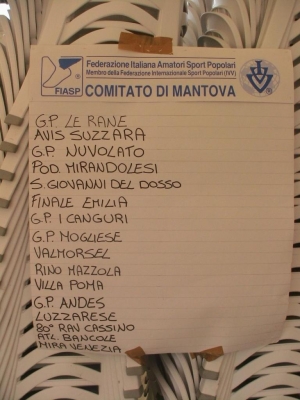 FIASP
Federazione Italiana Amatori Sport Popolari
Membro della Federazione Internazionale Sport Popolari (IVV)
COMITATO DI MANTOVA
IVV
G.P. LE RANE
AVIS SUZZARA
G.P. NUVOLATO
POD. MIRANDOLESI
S. GIOVANNI DEL DOSSO
FINALE EMILIA
G.P. I CANGURI
G.P. MOGLIESE
VALMORSEL
RINO MAZZOLA
VILLA POMA
G.P. ANDES
LUZZARESE
80° RAV CASSINO
ATL. BANCOLE
MIRA VENEZIA